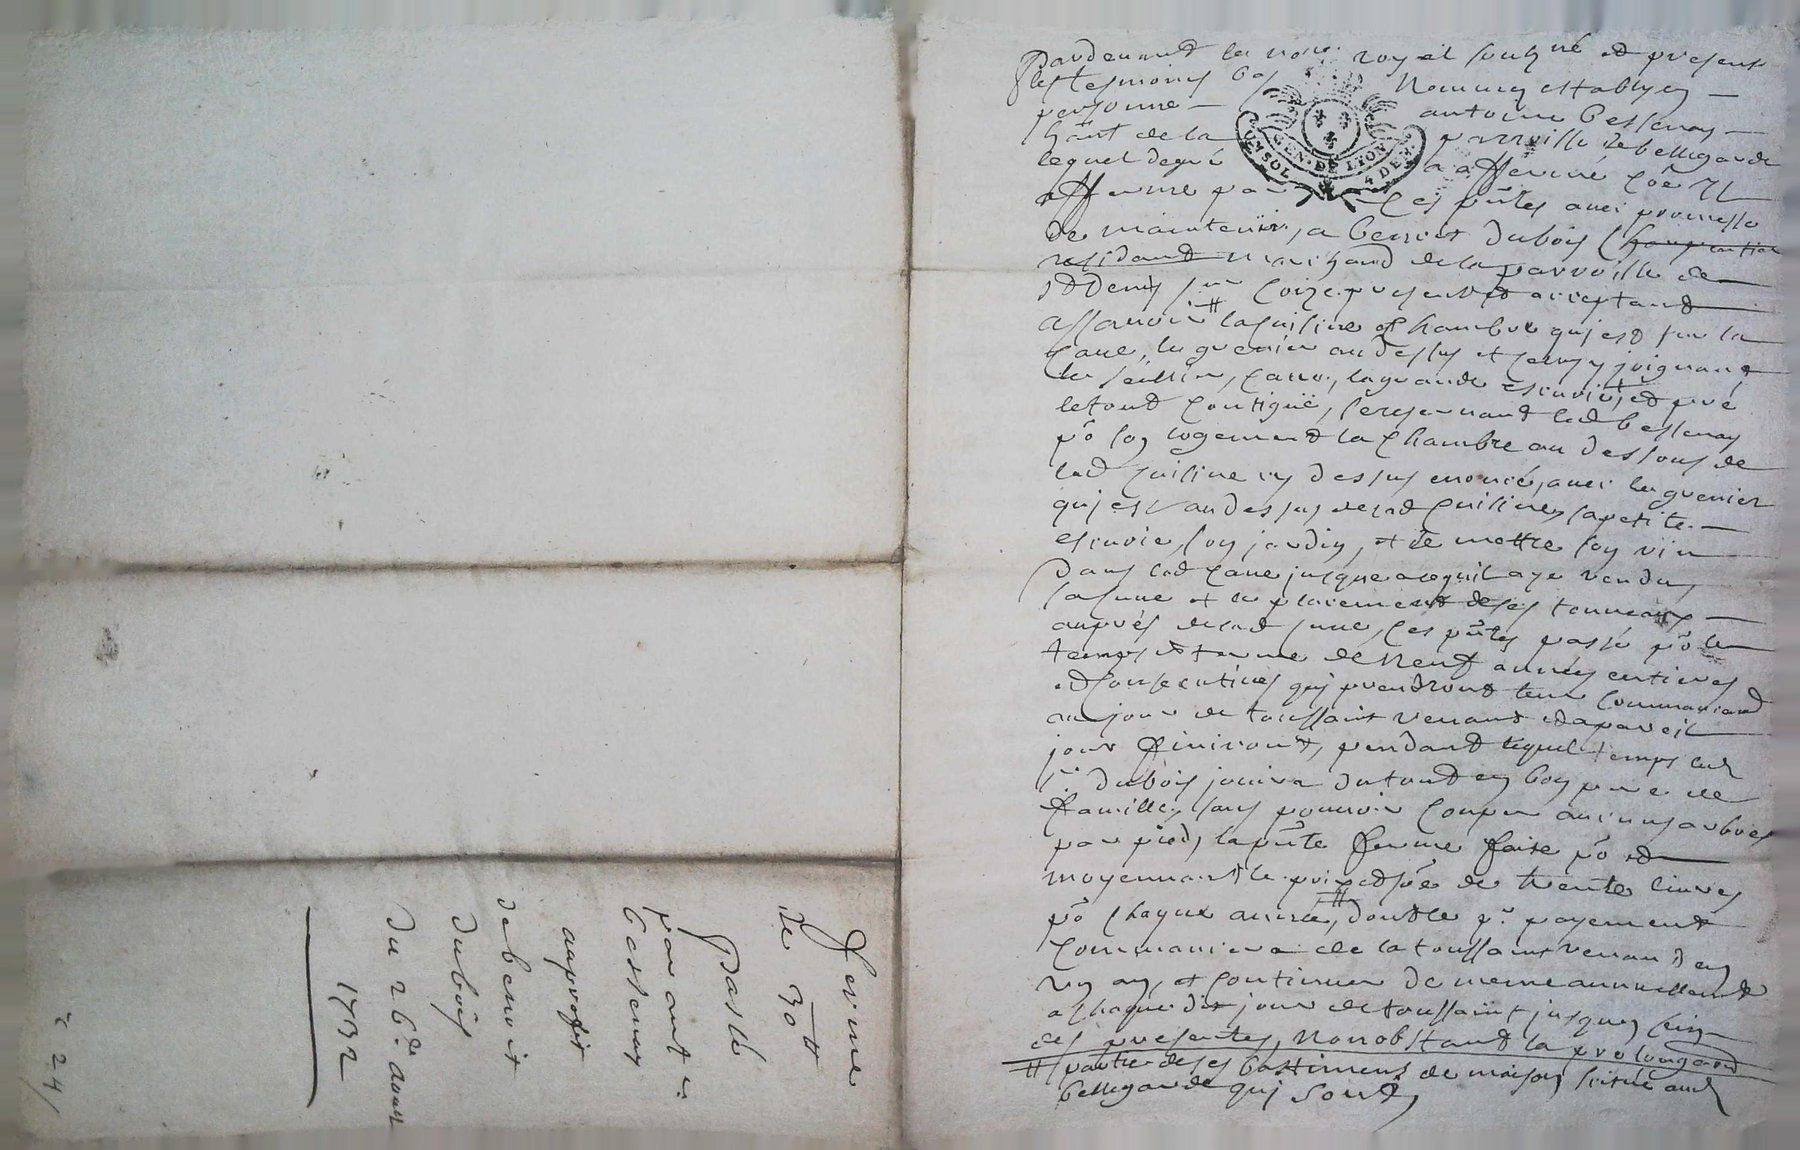 Ferme
de 30 ₶
Passée
par ant.e
Bessenay
au profit
de benoit
duboîs
du 26.e aoust
1732
c 24
GEN. DE LION
UN SOL 4 DE
Pardevant le no.re royal soubz.né et presents
les tesmoins bas nommez estably en
personne antoine bessenay
ha̅nt de la parroisse de bellegarde
lequel de gré a affermé co̅e Il
afferme par ces p̅ntes avec promesse
de maintenir, a benoist duboîs Charpantier
residant marchand de la parroisse de
st Denis sur Coize present et acceptant
assavoir ⧺ la cuisine et chambre qui est sur la
cave, le grenier au dessus et celuy y joignant
le cellier, carro, la grande escuirie, et pré
le tout contiguë, se reservant led bessenay
po̅ son logement la chambre au dessous de
lad cuisine cy dessus enoncé, avec le grenier
qui est au dessus de lad cuisine, la petite
escuirie, son jardin, et de mettre son vin
dans lad cave jusque a ce qu'il aye vendu
la cuve et le placement de ses tonneaux
auprés de lad cuve, ces p̅ntes passé po̅ le
temps et terme de neuf années entieres
et consecutives qui prendront leur commancemt
au jour de toussaint venant et a pareil
jour ffiniront, pendant lequel temps led
s.r duboîs jouira du tout en bon pere de
famille, sans pouvoir couper aucuns arbres
par pied, la p̅nte ferme faite po̅ et
moyennant le prix et so̅e de trente livres
po̅ chaque année, dont le p.r payement
commancera de la toussaint venant en
un an, et continuer de meme annuellement
a chaque dit jour de toussaint jusques fin
des presentes, nonobstant la prolongaon
⧺ partie de ses bastimens de maison scitué aud
bellegarde qui sont,